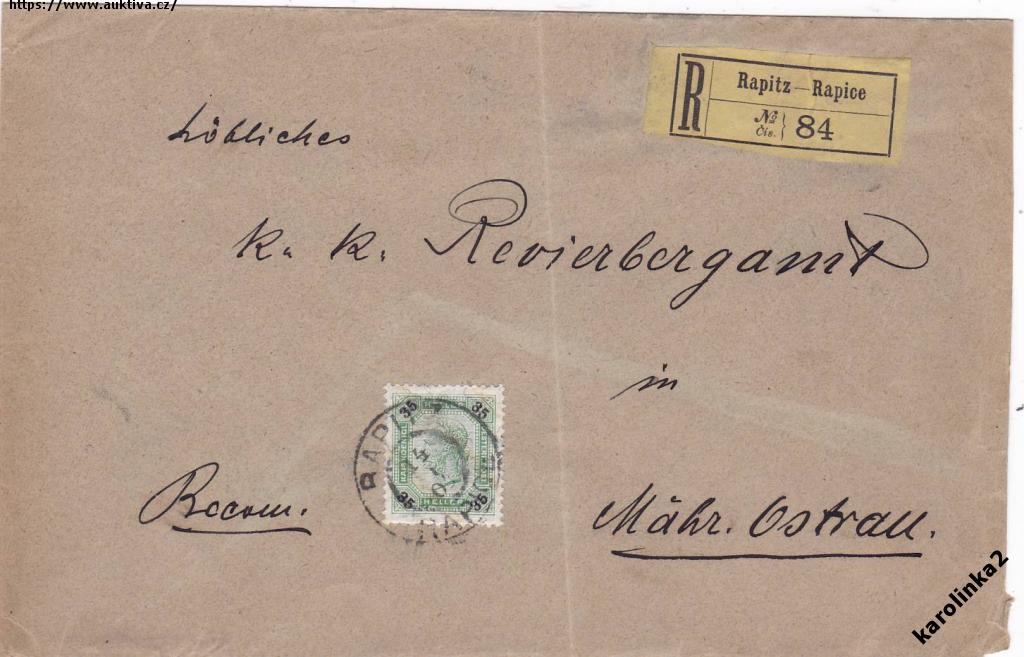 https://www.auktiva.cz/
R
Rapitz — Rapice
№ Čís. 84
Löbliches
k. k. Revierbergamt
in
35 35
35 35
HELLER
Recom.
Mähr. Ostrau.
karolinka2